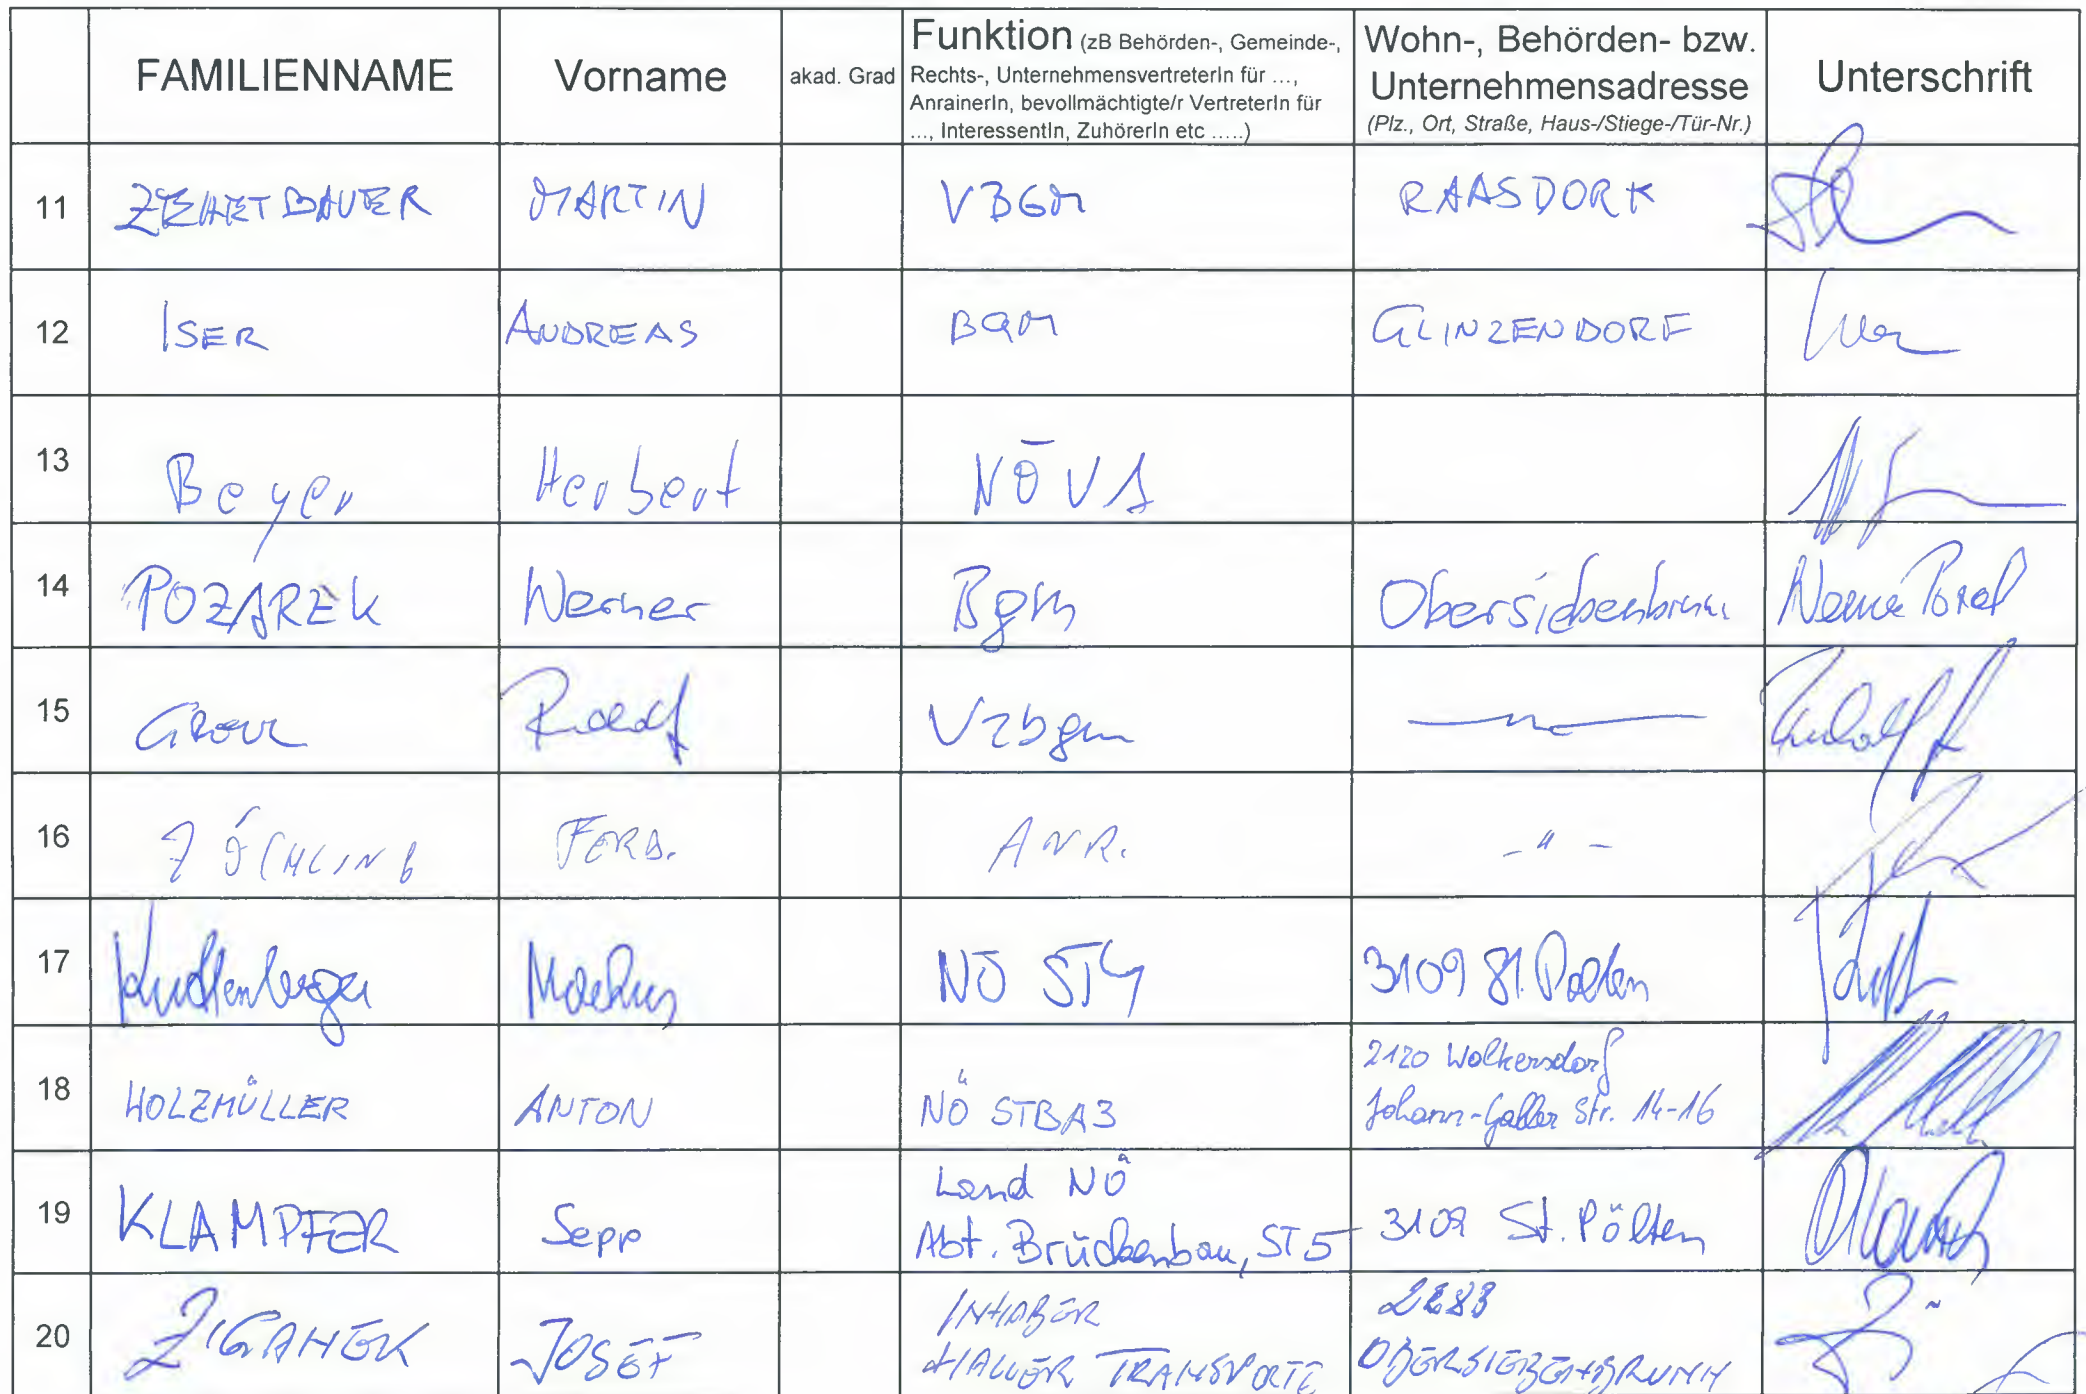 FAMILIENNAME
Vorname
akad. Grad
Funktion (zB Behörden-, Gemeinde-,
Rechts-, UnternehmensvertreterIn für ...,
AnrainerIn, bevollmächtigte/r VertreterIn für
..., InteressentIn, ZuhörerIn etc .....)
Wohn-, Behörden- bzw.
Unternehmensadresse
(Plz., Ort, Straße, Haus-/Stiege-/Tür-Nr.)
Unterschrift
11 ZEHETBAUER MARTIN VBGM RAASDORF
12 ISER ANDREAS BGM GLINZENDORF
13 Beyer Herbert NÖ VA
14 POZAREK Werner Bgm Obersiebenbrunn
15 Rudolf Vzbgm
16 ZÖCHLING FERD. ANR. - " -
17 Markus NÖ ST4 3109 St. Pölten
18 HOLZMÜLLER ANTON NÖ STBA3
2120 Wolkersdorf
Johann-Galler Str. 14-16
19 KLAMPFER Sepp
Land NÖ
Abt. Brückenbau, ST5
3109 St. Pölten
20 ZIGANEK JOSEF
INHABER
HALLER TRANSPORTE
2283
OBERSIEBENBRUNN